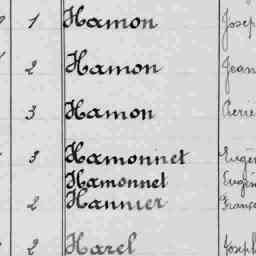 1 Hamon Josep
2 Hamon Jean
3 Hamon Pierre
3 Hamonnet Eugèn
Hamonnet Eugèn
2 Hannier França
2 Harel Joseph